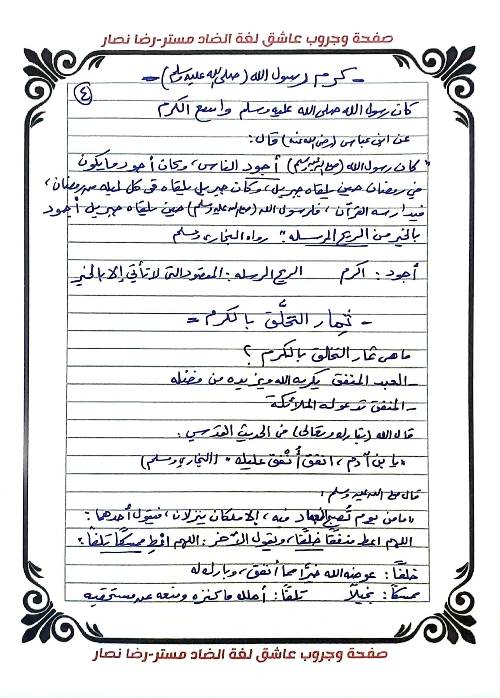 صفحة وجروب عاشق لغة الضاد مستر-رضا نصار
- كرم رسول الله (صلى الله عليه وسلم) -
٤
كان رسول الله صلى الله عليه وسلم واسع الكرم
عن ابن عباس (رضى الله عنه) قال:
"كان رسول الله (صلى الله عليه وسلم) أجود الناس، وكان أجود ما يكون
في رمضان حين يلقاه جبريل، وكان جبريل يلقاه فى كل ليله من رمضان،
فيدارسه القرآن، فلرسول الله (صلى الله عليه وسلم) حين يلقاه جبريل أجود
بالخير من الريح المرسله" رواه البخارى ومسلم
أجود: اكرم الريح المرسله: المقصود التى لا تأتي إلا بالخير
- ثِمار التخلَّق بالكرم =
ما هى ثمار التخلق بالكرم ؟
- العبد المنفق يكرمه الله ويزيده من فضله
- المنفق تدعو له الملائكة
قال الله (تبارك وتعالى) فى الحديث القدسي:
"يا بن آدم، انفق أُنفق عليك" (البخارى ومسلم)
قال صلى الله عليه وسلم:
"ما من يوم تُصبح العباد فيه، إلا ملكان ينزلان، فيقول أحدهما:
اللهم اعط منفقًا خلفًا، ويقول الآخر: اللهم اعْطِ ممسكًا تلفًا"
خلفًا: عوضه الله خيرًا مما أنفق، وبارك له
ممسكًا: بخيلًا تلفًا: أهلك ما كنزه ومنعه عن مستحقيه
صفحة وجروب عاشق لغة الضاد مستر-رضا نصار